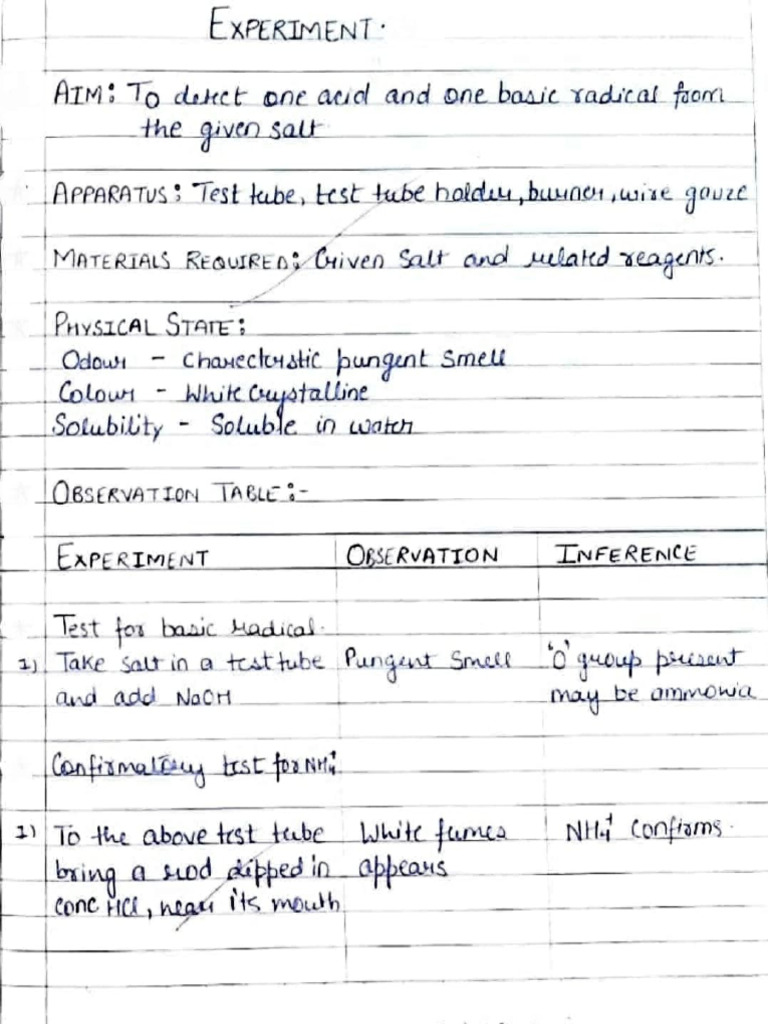 EXPERIMENT.
AIM: To detect one acid and one basic radical from
the given salt
APPARATUS: Test tube, test tube holder, burner, wire gauze
MATERIALS REQUIRED: Given Salt and related reagents.
PHYSICAL STATE:
Odour - Charecterstic pungent smell
Colour - White Crystalline
Solubility - Soluble in water
OBSERVATION TABLE:-
EXPERIMENT OBSERVATION INFERENCE
Test for basic radical.
1) Take salt in a test tube Pungent Smell 'O' group present
and add NaOH may be ammonia
Confirmatory test for NH₄⁺
1) To the above test tube White fumes NH₄⁺ Confirms.
bring a rod dipped in appears
conc HCl, near its mouth